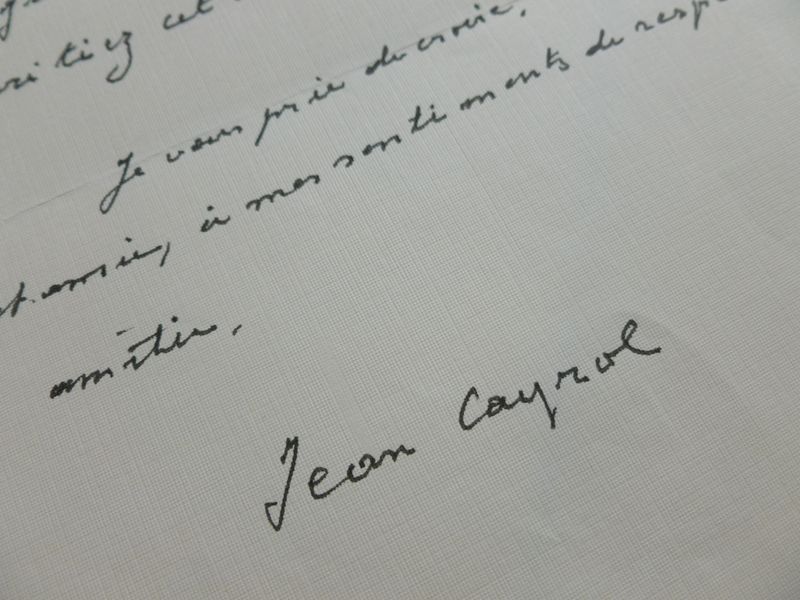 cet
Je vous prie de croire,
à mes sentiments de resp
amitié,
Jean Cayrol